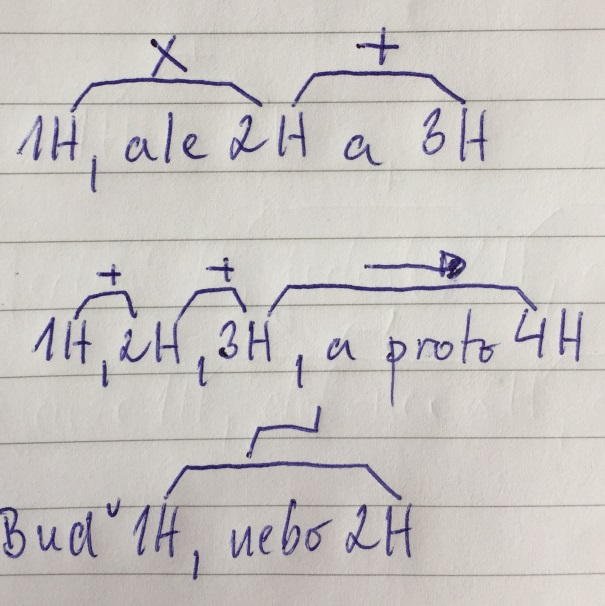 x +
1H, ale 2H a 3H
+ + →
1H, 2H, 3H, a proto 4H
Buď 1H, nebo 2H